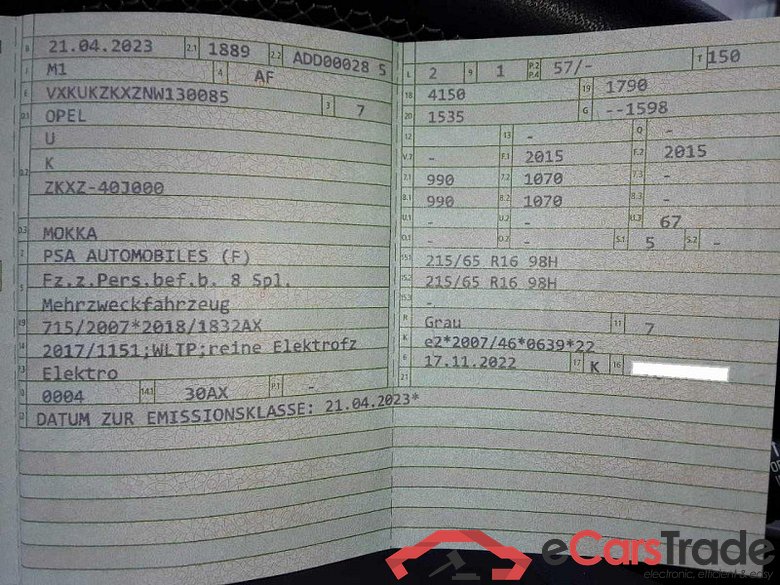 B 21.04.2023 2.1 1889 2.2 ADD00028 5
J M1 4 AF
E VXKUKZKXZNW130085 3 7
D.1 OPEL
U
K
D.2 ZKXZ-40J000
D.3 MOKKA
2 PSA AUTOMOBILES (F)
5 Fz.z.Pers.bef.b. 8 Spl.
Mehrzweckfahrzeug
715/2007*2018/1832AX
14 2017/1151;WLTP;reine Elektrofz
Elektro
0004 14.1 30AX P.1 -
22 DATUM ZUR EMISSIONSKLASSE: 21.04.2023*
L 2 9 1 P.2 P.4 57/- T 150
18 4150 19 1790
20 1535 G --1598
12 - 13 - Q -
V.7 - F.1 2015 F.2 2015
7.1 990 7.2 1070 7.3 -
8.1 990 8.2 1070 8.3 -
U.1 - U.2 - U.3 67
O.1 - O.2 - S.1 5 S.2 -
15.1 215/65 R16 98H
15.2 215/65 R16 98H
15.3 -
R Grau 11 7
K e2*2007/46*0639*22
6 17.11.2022 17 K 16
21
eCarsTrade
electronic, efficient & easy